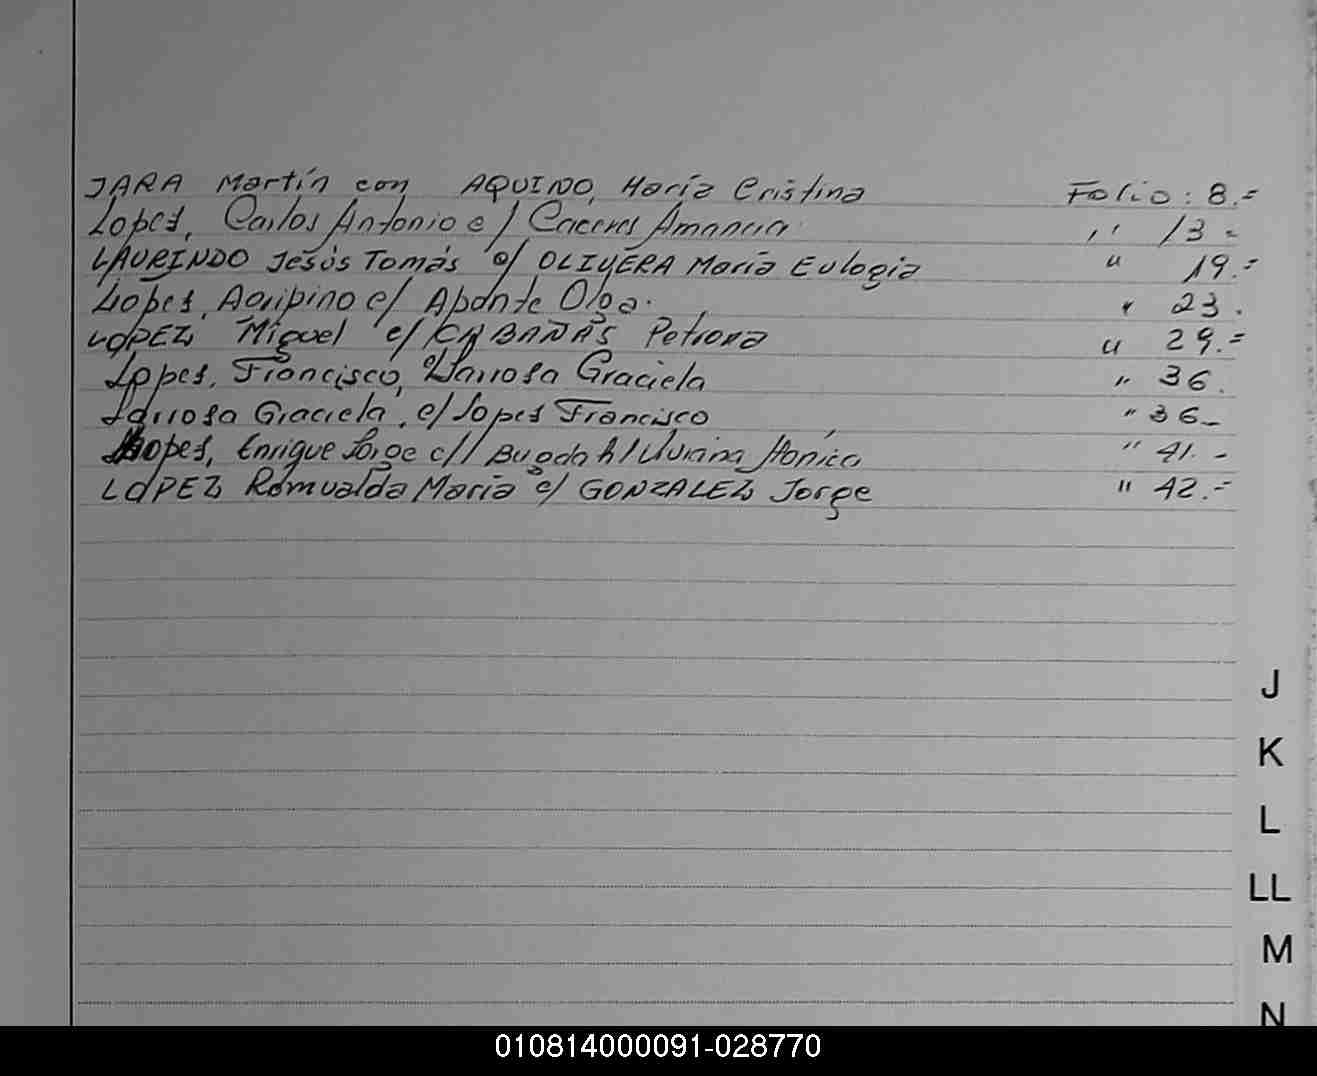 JARA Martín con AQUINO, María Cristina Folio: 8.=
Lopes, Carlos Antonio c/ Caceres Amancia ,, 13 -
LAURINDO Jesús Tomás c/ OLIVERA María Eulogia " 19.=
Lopes, Agripino c/ Aponte Olga. " 23.
LOPEZ Miguel c/ CABAÑAS Petrona " 29.=
Lopes, Francisco, Larrosa Graciela " 36.
Larrosa Graciela, c/ Lopes Francisco " 36-
Lopes, Enrique Jorge c// Mónica " 41. -
LOPEZ Romualda María c/ GONZALEZ Jorge " 42.=
J
K
L
LL
M
N
010814000091-028770